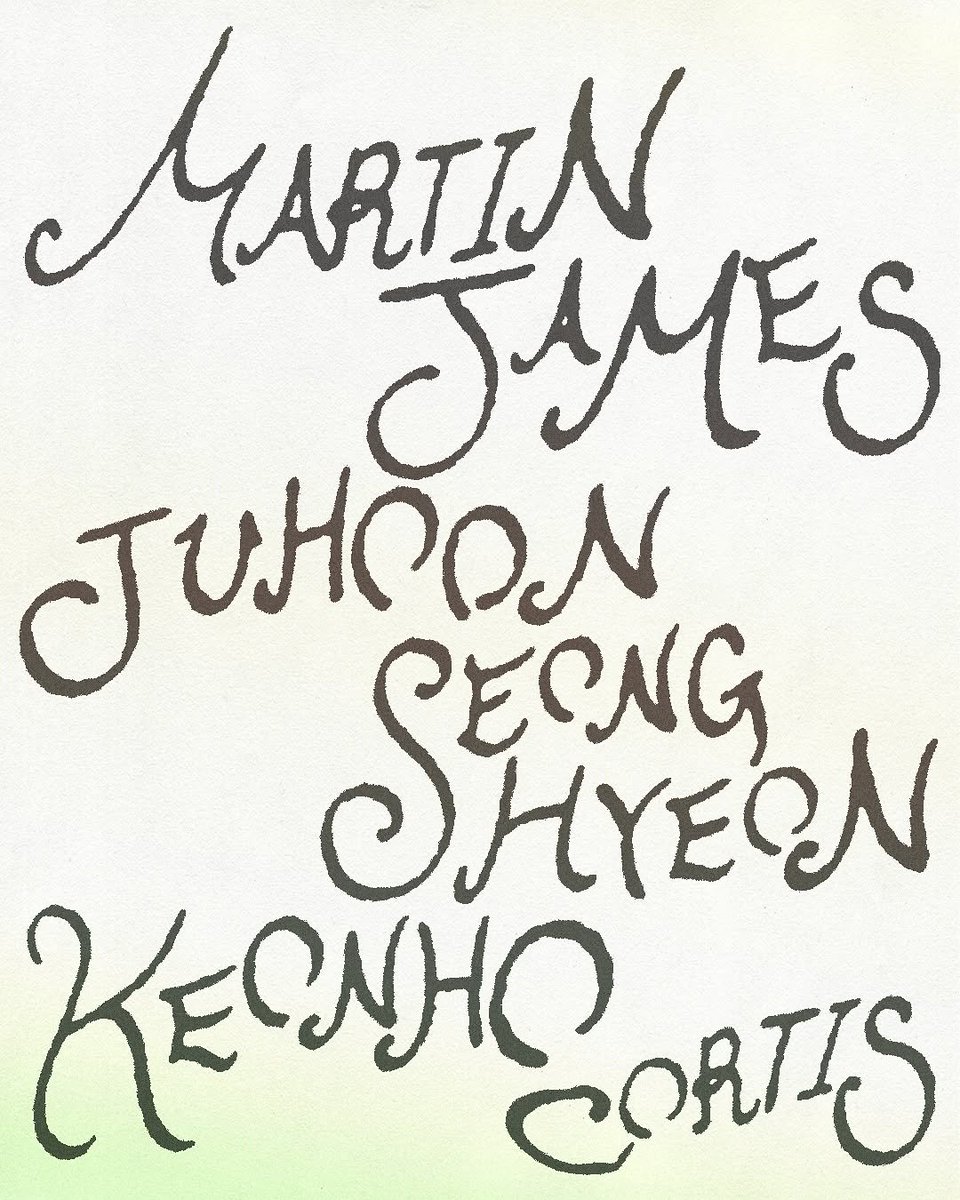 MARTIN
JAMES
JUHOON
SEONG
HYEON
KEONHO
CORTIS